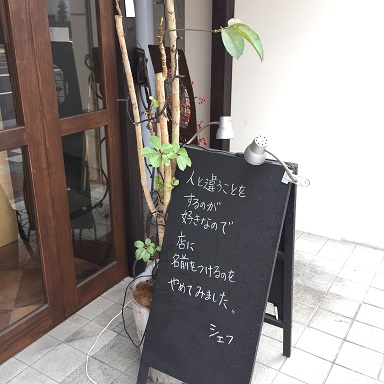 人と違うことを
するのが
好きなので
店に
名前をつけるのを
やめてみました、
シェフ